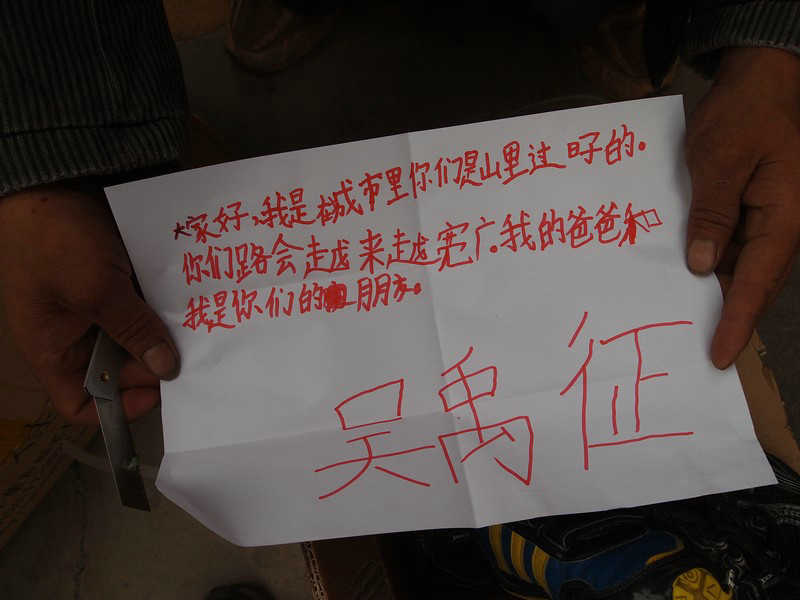 大家好,我是城市里你们是山里过日子的。
你们路会越来越宽广。我的爸爸和
我是你们的朋友。
吴禹征